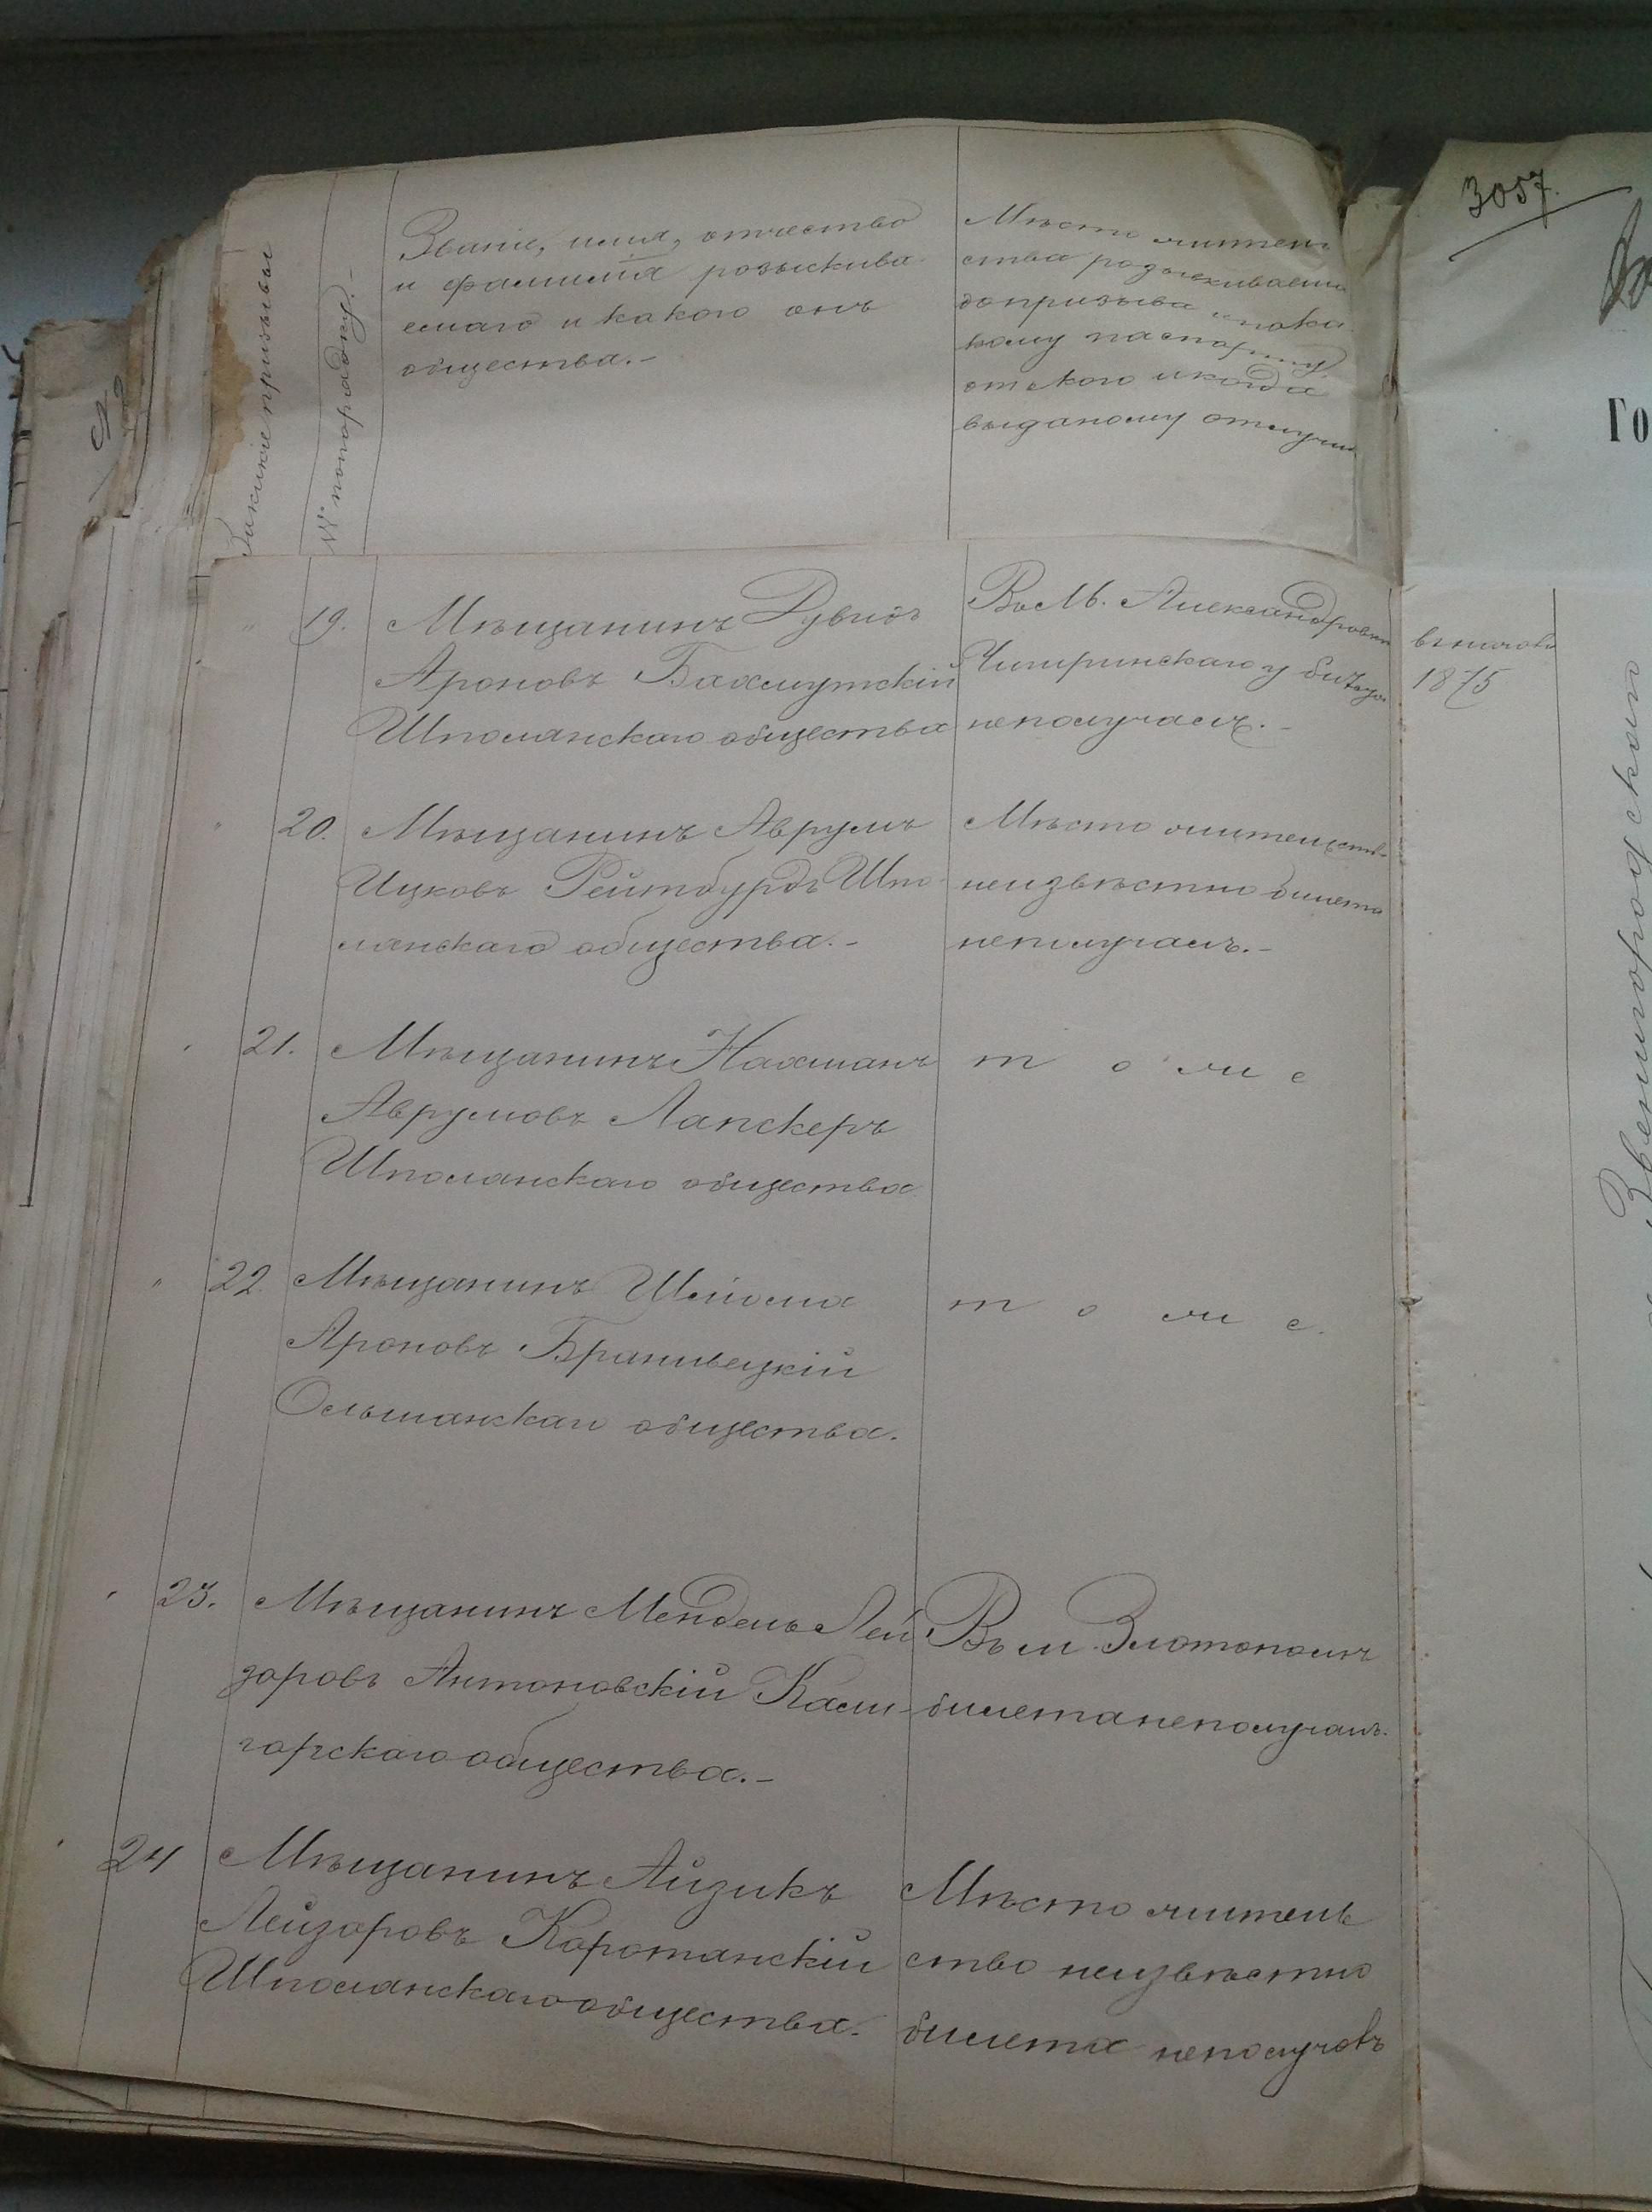 3057.
Го
№ по порядку.-
Званіе, имя, отчество
и фамилія розыскива
емаго и какого онъ
общества.-
Мѣсто жител
ства розыскиваема
до призыва и по ка
кому паспорту
от кого и когда
выданому отлучи
19.
Мѣщанинъ Рувинъ
Ароновъ Бахмутскій
Шполянскаго общества
Въ М. Александровк
Чигиринскаго у
неполучалъ.-
1875
20.
Мѣщанинъ Аврумъ
Ицковъ Рейтбурдъ Шпо
лянскаго общества.-
Мѣсто жительств
неизвѣстно билета
неполучалъ.-
21.
Мѣщанинъ Нахманъ
Аврумовъ Лапскеръ
Шполянскаго общества
т о ж е
22.
Мѣщанинъ
Ароновъ
Ольшанскаго общества.
т о ж е.
23.
Мѣщанинъ Мендель Лей
заровъ Антоновскій Кали-
горскаго общества.-
Въ м. Златополѣ
билета неполучалъ.
24
Мѣщанинъ Айзикъ
Лейзоровъ Коротанскій
Шполянскаго общества.
Мѣсто житель
ство неизвѣстно
билета неполучалъ
Звенигородскаго